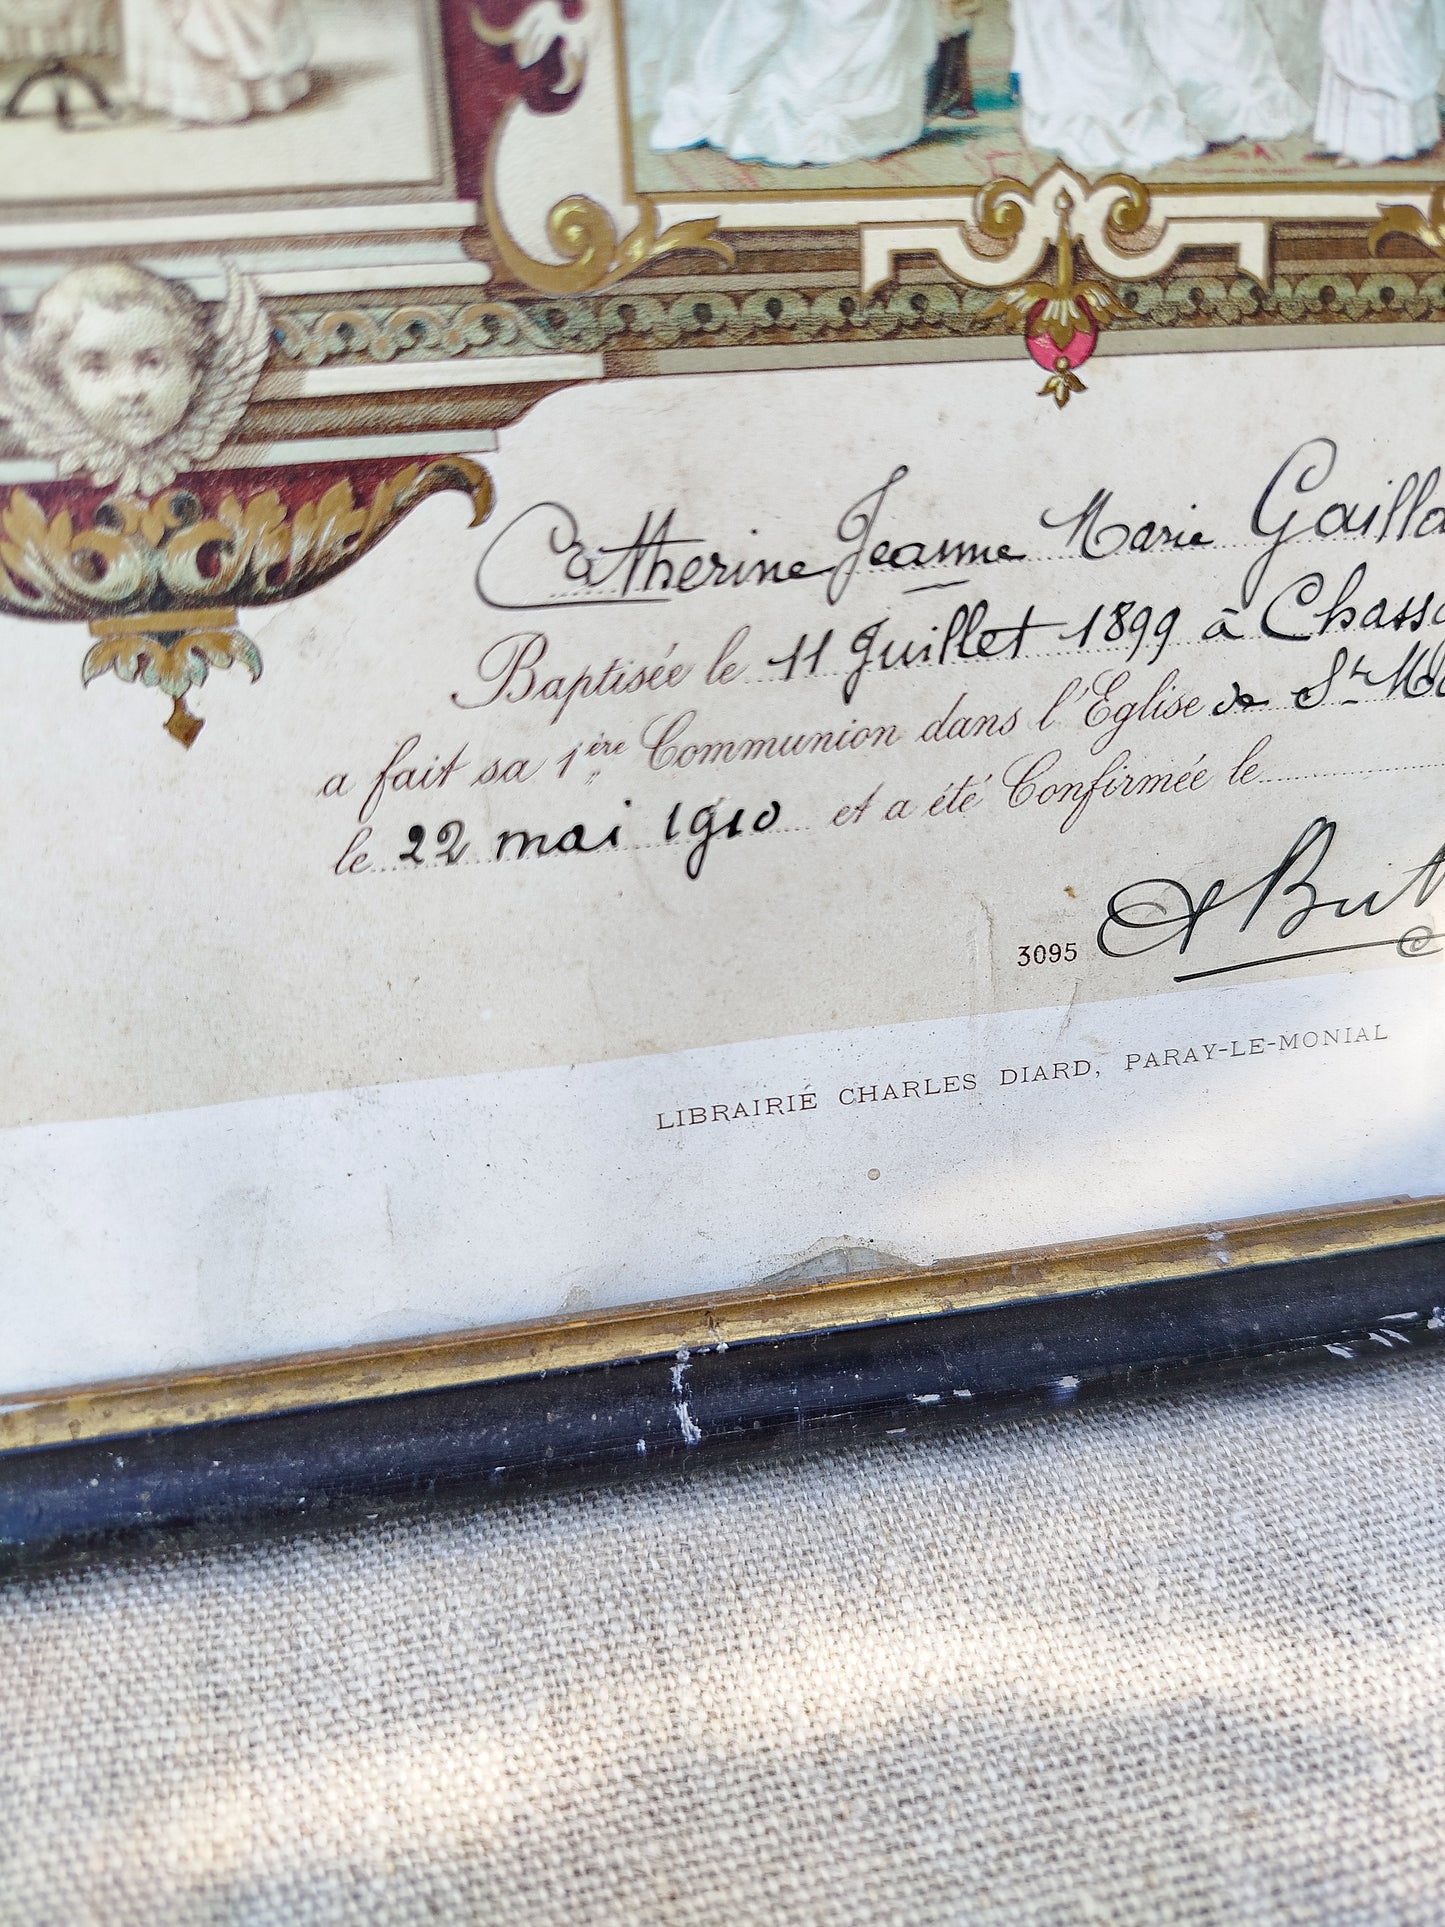 Catherine Jeanne Marie
Baptisée le 11 Juillet 1899 à
a fait sa 1ère Communion dans l'Eglise de St
le 22 mai 1910 et a été Confirmée le
3095
LIBRAIRIE CHARLES DIARD, PARAY-LE-MONIAL